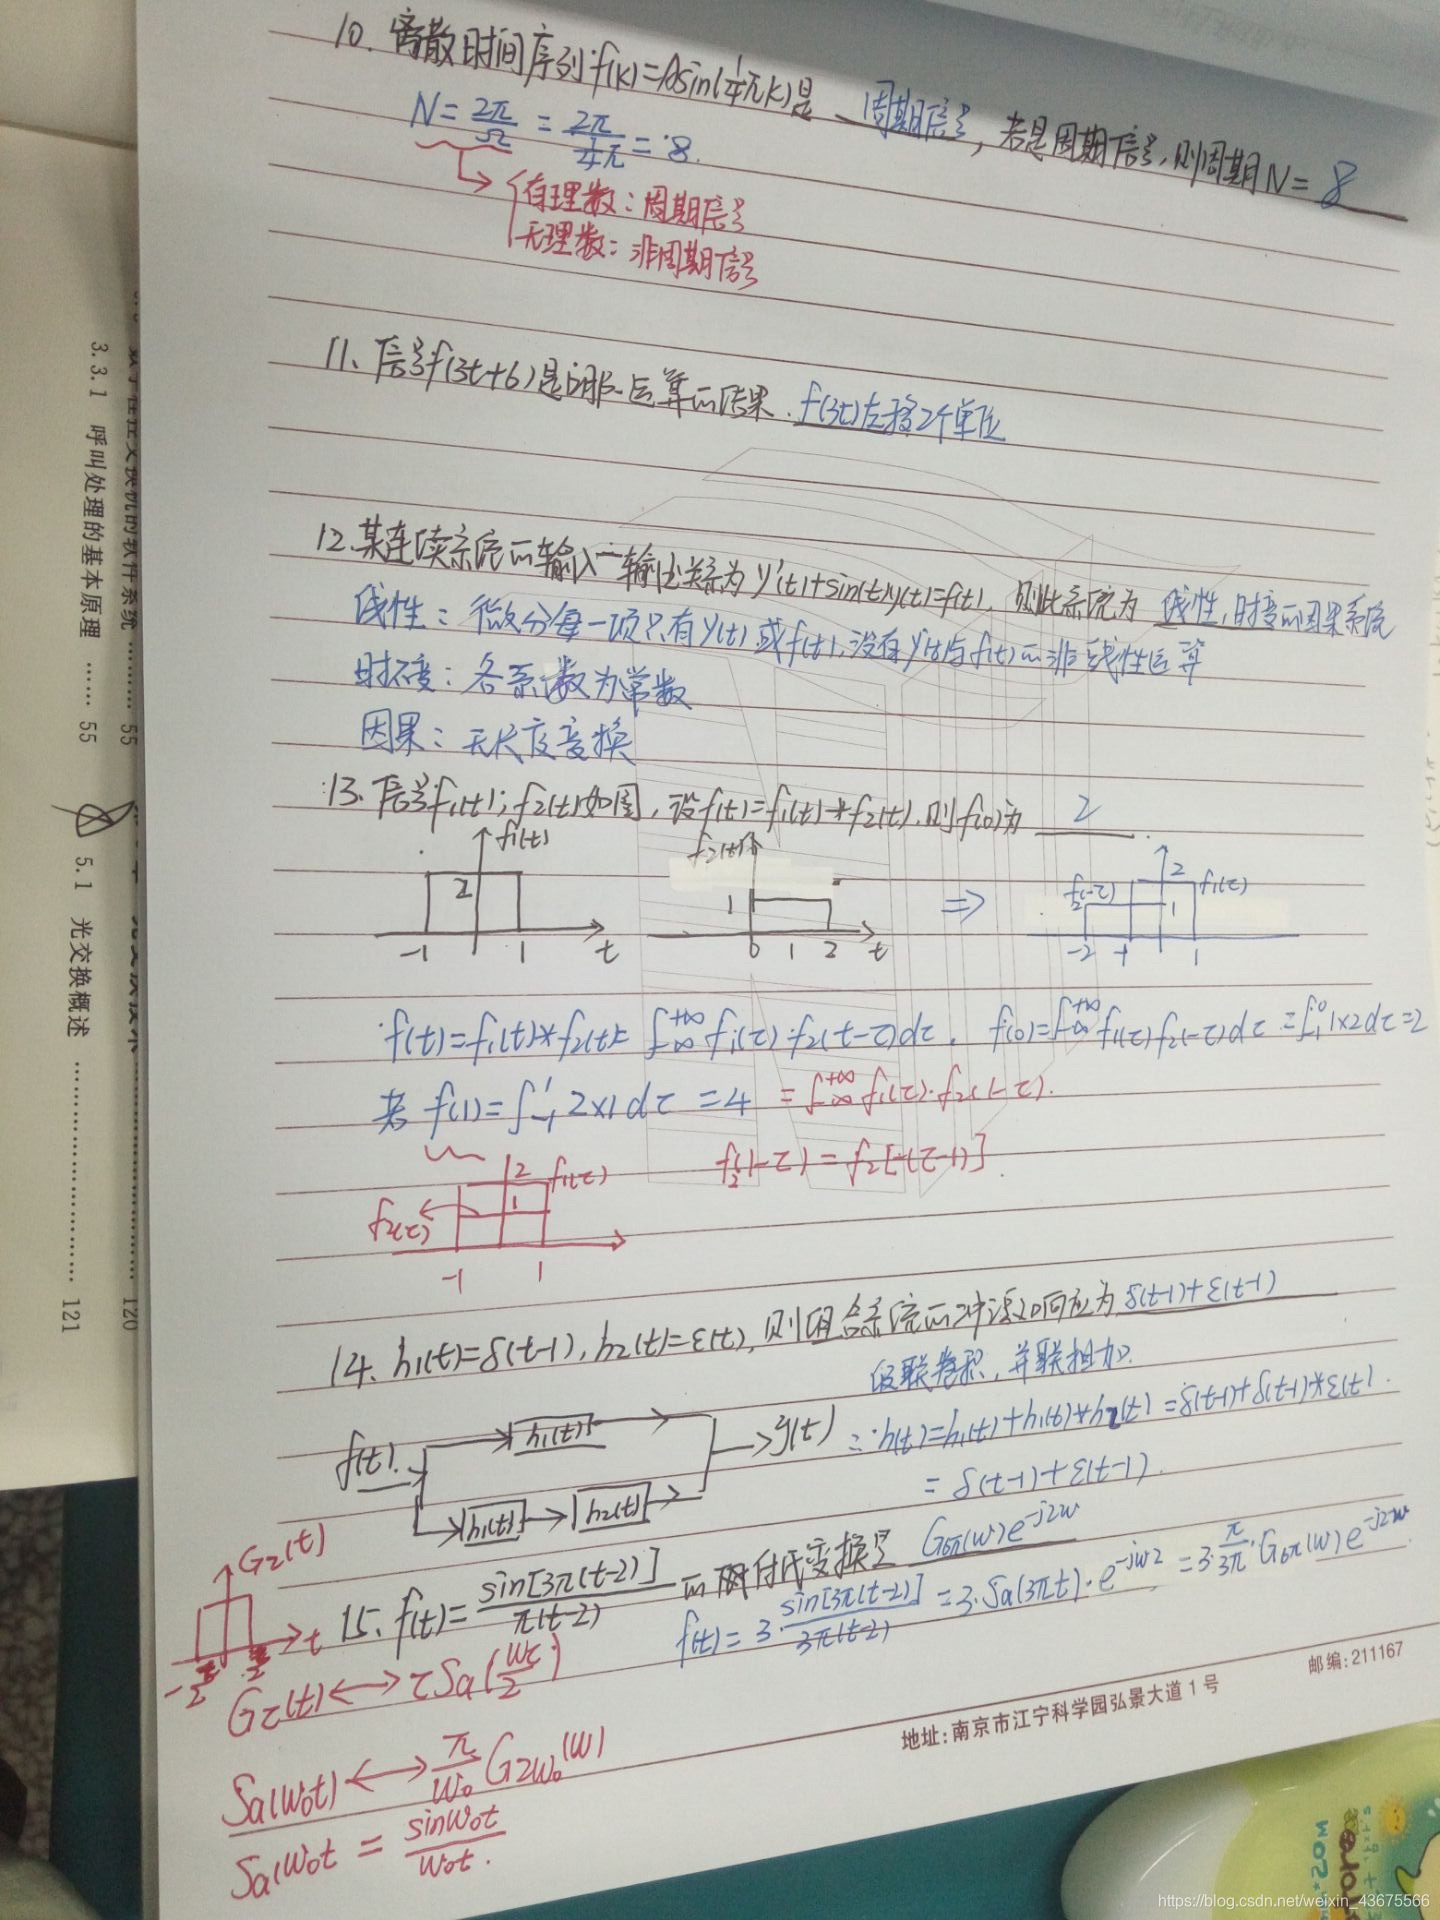 10. 离散时间序列f(k)=Asin(1/4πk)是 周期信号, 若是周期信号,则周期N= 8
N=2π/Ω = 2π/(1/4π) = 8.
有理数:周期信号
无理数:非周期信号
11、信号f(3t+6)是 运算的结果. f(3t)左移2个单位
12、某连续系统的输入-输出关系为y'(t)+sin(t)y(t)=f(t), 则此系统为 线性,时变的因果系统
线性:微分每一项只有y(t)或f(t),没有y(t)与f(t)的非线性运算
时不变:各系数为常数
因果:无尺度变换
13、信号f₁(t);f₂(t)如图,设f(t)=f₁(t)*f₂(t).则f(0)为 2
f₁(t)
2
-1 1 t
f₂(t)
1
0 1 2 t
=>
f₂(-τ) 2 f₁(τ)
1
-2 -1 1
f(t)=f₁(t)*f₂(t)=∫-∞+∞ f₁(τ)·f₂(t-τ)dτ, f(0)=∫-∞+∞ f₁(τ)f₂(-τ)dτ=∫-1 0 1×2dτ=2
若 f(1)=∫-1 1 2×1dτ =4 =∫-∞+∞ f₁(τ)·f₂(1-τ).
f₂(1-τ)=f₂[-(τ-1)]
2 f₁(τ)
f₂(τ) 1
-1 1
14、h₁(t)=δ(t-1), h₂(t)=ε(t), 则组合系统的冲激响应为 δ(t-1)+ε(t-1)
级联卷积,并联相加.
f(t) h₁(t) y(t) ∴h(t)=h₁(t)+h₁(t)*h₂(t)=δ(t-1)+δ(t-1)*ε(t).
h₁(t) h₂(t) =δ(t-1)+ε(t-1).
15、f(t)=sin[3π(t-2)]/π(t-2) 的傅氏变换是 G6π(w)e^-j2w
f(t)=3·sin[3π(t-2)]/3π(t-2)=3·Sa(3πt)·e^-jw2=3·π/3π·G6π(w)e^-j2w
Gτ(t)
-τ/2 τ/2 t
Gτ(t)↔τSa(wτ/2)
Sa(w₀t)↔π/w₀ G2w₀(w)
Sa(w₀t = sinw₀t/w₀t.
地址:南京市江宁科学园弘景大道1号
邮编:211167
3.3.1 呼叫处理的基本原理 …… 55
55
5.1 光交换概述 …………………… 121
120
https://blog.csdn.net/weixin_43675566